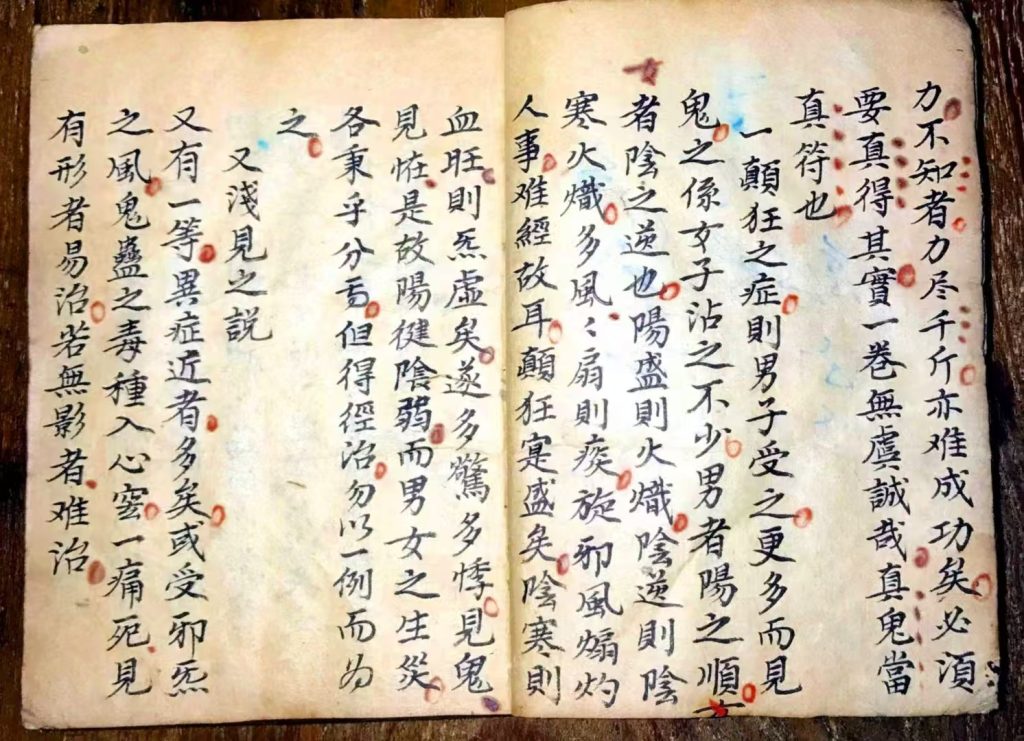 力不知者力尽千斤亦难成功矣必湏
要真得其實一卷無虞誠哉真鬼當
真符也
一顛狂之症則男子受之更多而見
鬼之係女子沾之不少男者陽之順
女者陰之逆也陽盛則火熾陰逆則陰
寒火熾多風〻扇則痰旋邪風煽灼
人事难經故耳顛狂寔盛矣陰寒則
血旺則炁虛矣遂多驚多悸見鬼
見恠是故陽健陰弱而男女之生災
各秉乎分但得徑治勿以一例而为
之
又淺見之說
又有一等異症近者多矣或受邪炁
之風鬼蠱之毒種入心一痛死見
有形者易治若無影者难治